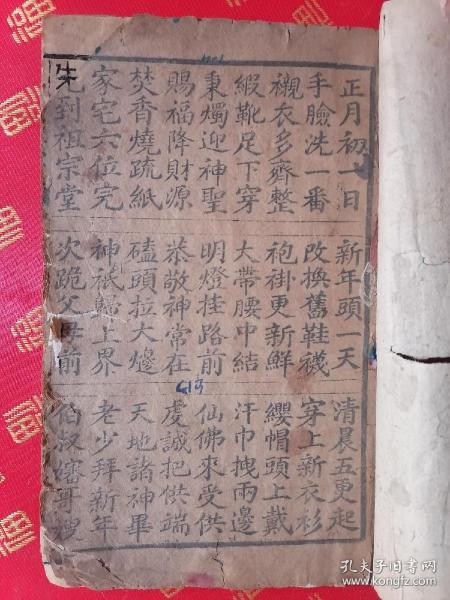 正月初一日 新年頭一天 清晨五更起
手臉洗一番 改換舊鞋襪 穿上新衣衫
襯衣多齊整 袍褂更新鮮 纓帽頭上戴
緞靴足下穿 大帶腰中結 汗巾拽兩邊
秉燭迎神聖 明燈挂路前 仙佛來受供
賜福降財源 恭敬神常在 虔誠把供端
焚香燒疏紙 磕頭拉大 天地諸神畢
家宅六位完 神祇歸上界 老少拜新年
先到祖宗堂 次跪父母前 伯叔嬸哥嫂
孔夫子旧书网